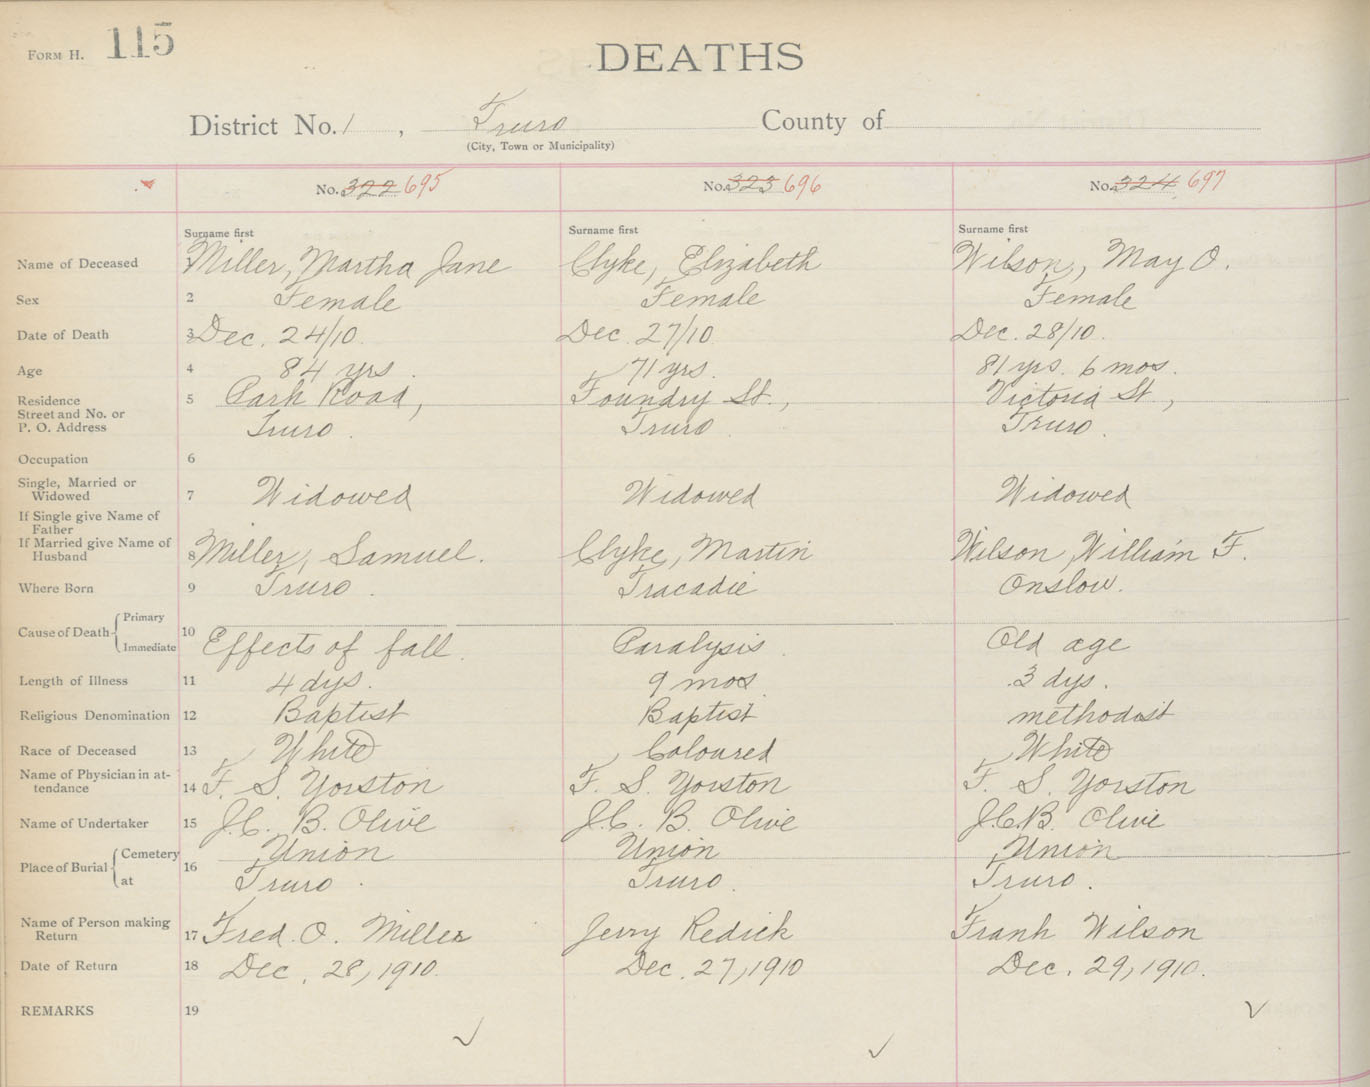 FORM H. 115
DEATHS
District No. 1, Truro County of
(City, Town or Municipality)
No. 322 695 No. 323 696 No. 324 697
Surname first Surname first Surname first
Name of Deceased 1 Miller, Martha Jane Clyke, Elizabeth Wilson, May O.
Sex 2 Female Female Female
Date of Death 3 Dec. 24/10. Dec. 27/10 Dec. 28/10.
Age 4 84 yrs. 71 yrs. 81 yrs. 6 mos.
Residence 5 Park Road, Foundry St., Victoria St.,
Street and No. or
P. O. Address Truro. Truro. Truro.
Occupation 6
Single, Married or
Widowed 7 Widowed Widowed Widowed
If Single give Name of
Father
If Married give Name of
Husband 8 Miller, Samuel. Clyke, Martin Wilson, William F.
Where Born 9 Truro. Tracadie Onslow.
Cause of Death Primary
Immediate 10 Effects of fall. Paralysis. Old age
Length of Illness 11 4 dys. 9 mos. 3 dys.
Religious Denomination 12 Baptist Baptist methodist
Race of Deceased 13 White Coloured White
Name of Physician in at-
tendance 14 F. S. Yorston F. S. Yorston F. S. Yorston
Name of Undertaker 15 J.C. B. Olive J.C. B. Olive J.C.B. Olive
Place of Burial Cemetery 16 Union Union Union
at Truro. Truro. Truro.
Name of Person making
Return 17 Fred. O. Miller Jerry Redick Frank Wilson
Date of Return 18 Dec. 28, 1910. Dec. 27, 1910 Dec. 29, 1910.
REMARKS 19